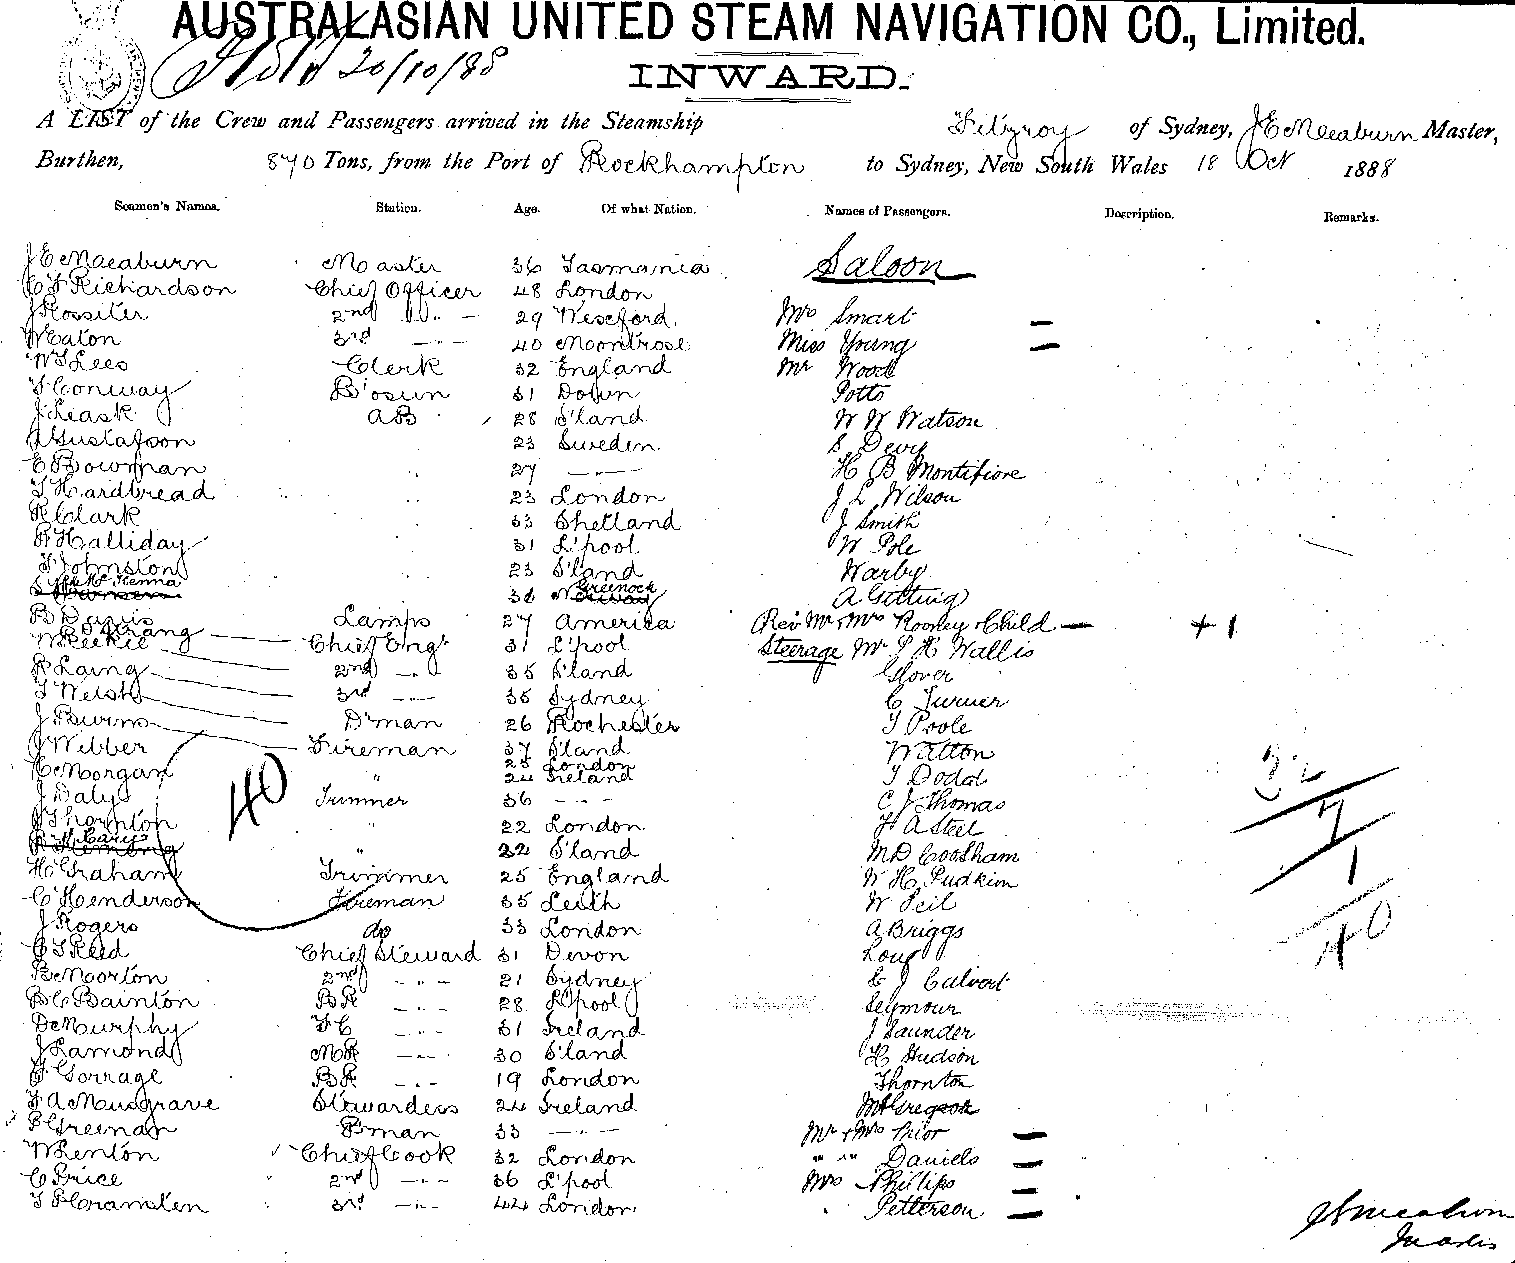 AUSTRALASIAN UNITED STEAM NAVIGATION CO., Limited.
20/10/88
INWARD.
A LIST of the Crew and Passengers arrived in the Steamship Fitzroy of Sydney, J E Meaburn Master,
Burthen, 870 Tons, from the Port of Rockhampton to Sydney, New South Wales 18 Oct 1888
Seamen's Names. Station. Age. Of what Nation. Names of Passengers. Description. Remarks.
J E Meaburn Master 36 Tasmania Saloon
C F Richardson Chief Officer 48 London
J Rossiter 2nd " 29 Wexford Mrs Smart —
W Eaton 3rd —"— 40 Montrose Miss Young —
W S Lees Clerk 32 England Mr Wood
T Conway B'osun 31 Down Potts
J Leask AB 28 S'land W W Watson
A Gustafson 23 Sweden S Devy
C Bowman 27 —"— H B Montifiore
T Hardbread 23 London J L Wilson
R Clark 33 Shetland J Smith
R Halliday 31 L'pool W Pole
T Johnston 23 S'land Warby
McKenna 36 Greenock A Gitting
B Davis Lamps 27 America Rev Mr & Mrs Rooney & Child — + 1
Chief Engr 31 L'pool Steerage Mr S H Wallis
R Laing 2nd —"— 35 S'land Glover
T Welsh 3rd —"— 35 Sydney C Turner
J Burns D'man 26 Rochester T Poole
J Webber Fireman 37 S'land Watton
25 London
C Morgan " 24 Ireland T Dodd
32
J Daly Trimmer 36 —"— C J Thomas
40
7
J Thornton " 22 London H A Steel
McCary " 22 S'land M D Cootham
H Graham Trimmer 25 England W H Pudkin
1
C Henderson Fireman 35 Leith W Peil
J Rogers do 33 London A Briggs
40
C T Reed Chief Steward 31 Devon Long
B Morton 2nd —"— 21 Sydney E J Calvert
B C Bainton BR —"— 28 L'pool Seymour
D Murphy FC —"— 31 Ireland J Saunder
J Lamond MR —"— 30 S'land H Hudson
F Gorrage BR —"— 19 London Thornton
F A Musgrave Stewardess 24 Ireland McGregor
P Greenan P'man 33 —"— Mr & Mrs Prior —
W Renton Chief Cook 32 London " " " Daniels —
C Price 2nd —"— 36 L'pool Mrs Phillips —
T P Cramsten 3rd —"— 44 London Petterson —
J E Meaburn
Master